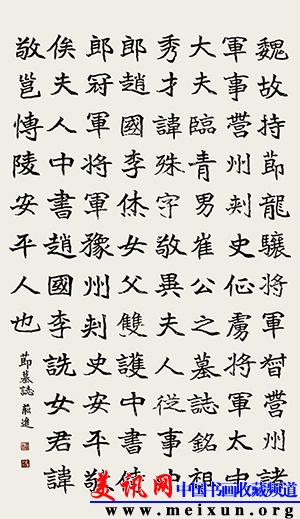 魏故持莭龍驤將軍督營州諸
軍事營州刾史征虜將軍太中
大夫臨青男崔公之墓誌銘祖
秀才諱殊字敬異夫人從事中
郎趙國李休女父雙護中書侍
郎冠軍將軍豫州刾史安平敬
侯夫人中書趙國李詵女君諱
敬邕愽陵安平人也
莭墓誌 莊進
美讯网 中国书画收藏频道
www.meixun.org